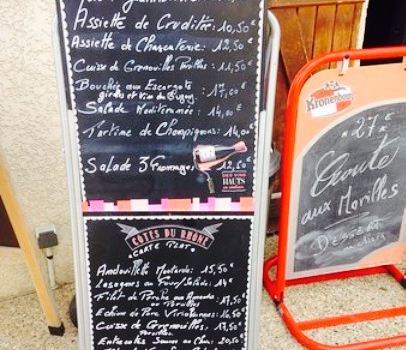 Assiette de Crudités: 10,50 €
Assiette de Charcuterie: 12,50 €
Cuisse de Grenouilles Persilles: 11,50 €
Bouchée aux Escargots
girolles et Vin du Bugey: 17,00 €
Salade Mediterranée: 14,00 €
Tartine de Champignons: 14,00 €
Salade 3 Fromages: 12,50 €
HAUTS
CÔTES DU RHÔNE
CARTE PLAT
Andouillette Moutarde: 15,50 €
Lasagnes au Four/Salade: 14 €
Filet de Perche aux Amandes
Echine de Porc
Cuisse de Grenouilles
Entrecôtes Sauces au Choix:
Kronenbourg
27 €
Croute
aux Morilles
Dessert
au choix